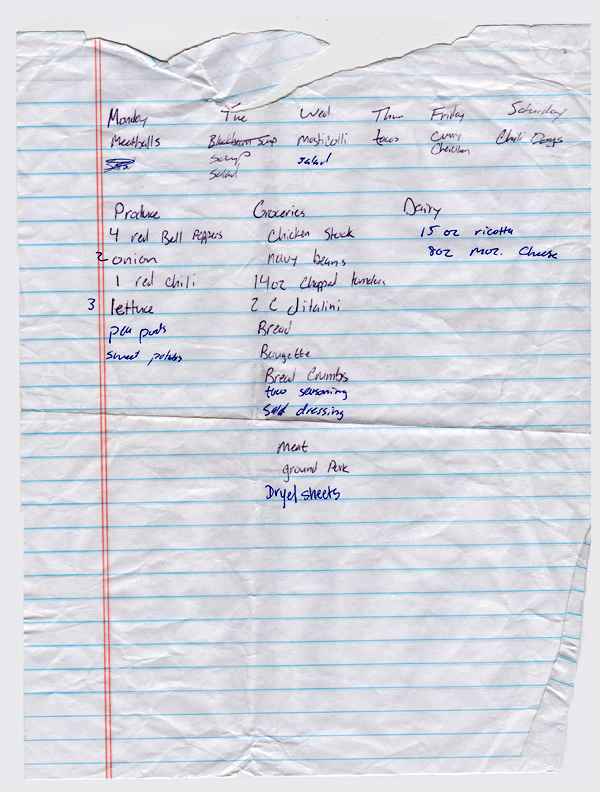 Monday Tue Wed Thur Friday Saturday
Meatballs Blackbean Soup Mosticolli tacos Curry Chili Dogs
Soup salad Chicken
Salad
Produce Groceries Dairy
4 red Bell Peppers Chicken Stock 15 oz ricotta
2 onion navy beans 8oz moz. Cheese
1 red chili 14oz Chopped
3 lettuce 2 C ditalini
pea pods Bread
sweet potatos Baugette
Bread Crumbs
taco seasoning
dressing
Meat
ground Pork
Dryel sheets